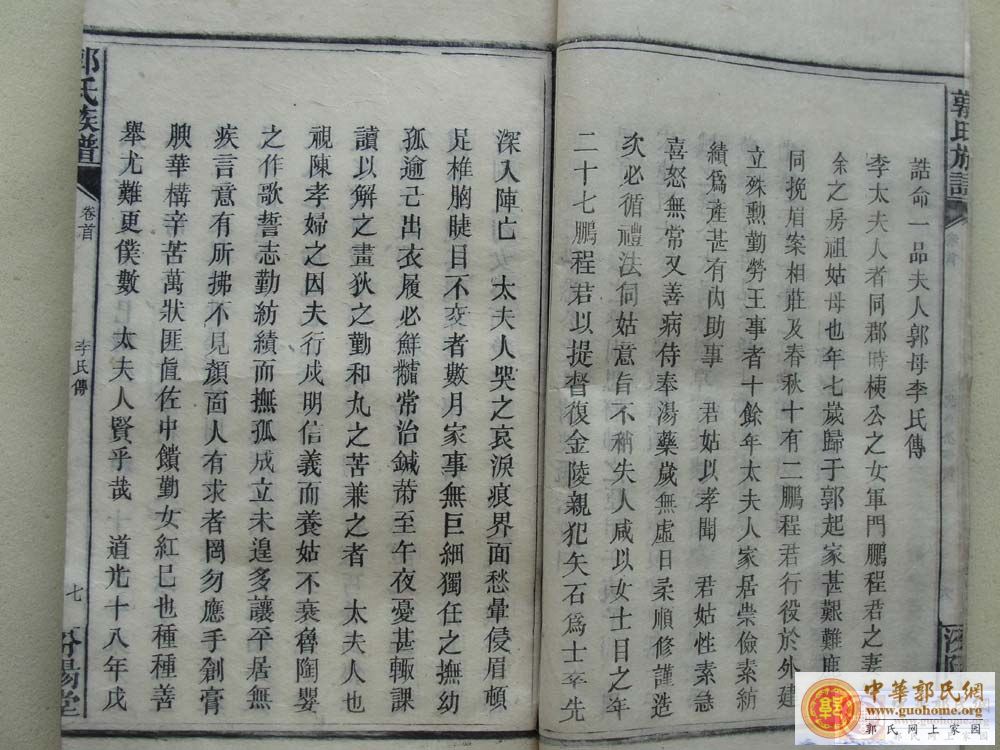 誥命一品夫人郭母李氏傳
李太夫人者同郡時棟公之女軍門鵬程君之妻
余之房祖姑母也年七歲歸于郭起家甚艱難鹿
同挽眉案相莊及春秋十有二鵬程君行役於外建
立殊勲勤勞王事者十餘年太夫人家居崇儉素紡
績爲產甚有內助事 君姑以孝聞 君姑性素急
喜怒無常又善病侍奉湯藥歲無虛日柔順修謹造
次必循禮法伺姑意旨不稍失人咸以女士目之年
二十七鵬程君以提督復金陵親犯矢石爲士卒先
郭氏族譜
深入陣亡 太夫人哭之哀淚痕界面愁暈侵眉頓
足椎胸睫目不交者數月家事無巨細獨任之撫幼
孤逾己出衣履必鮮髓常治鍼黹至午夜憂甚輙課
讀以解之畫狄之勤和丸之苦兼之者 太夫人也
視陳孝婦之因夫行戍明信義而養姑不衰魯陶嬰
之作歌誓志勤紡績而撫孤成立未遑多讓平居無
疾言意有所拂不見顏面人有求者罔勿應手創膏
腴華構辛苦萬狀匪眞佐中饋勤女紅巳也種種善
舉尤難更僕數 太夫人賢乎哉 道光十八年戊
郭氏族譜
卷首
李氏傳
七
汾陽堂
中華郭氏網
www.guohome.org
郭氏网上家园